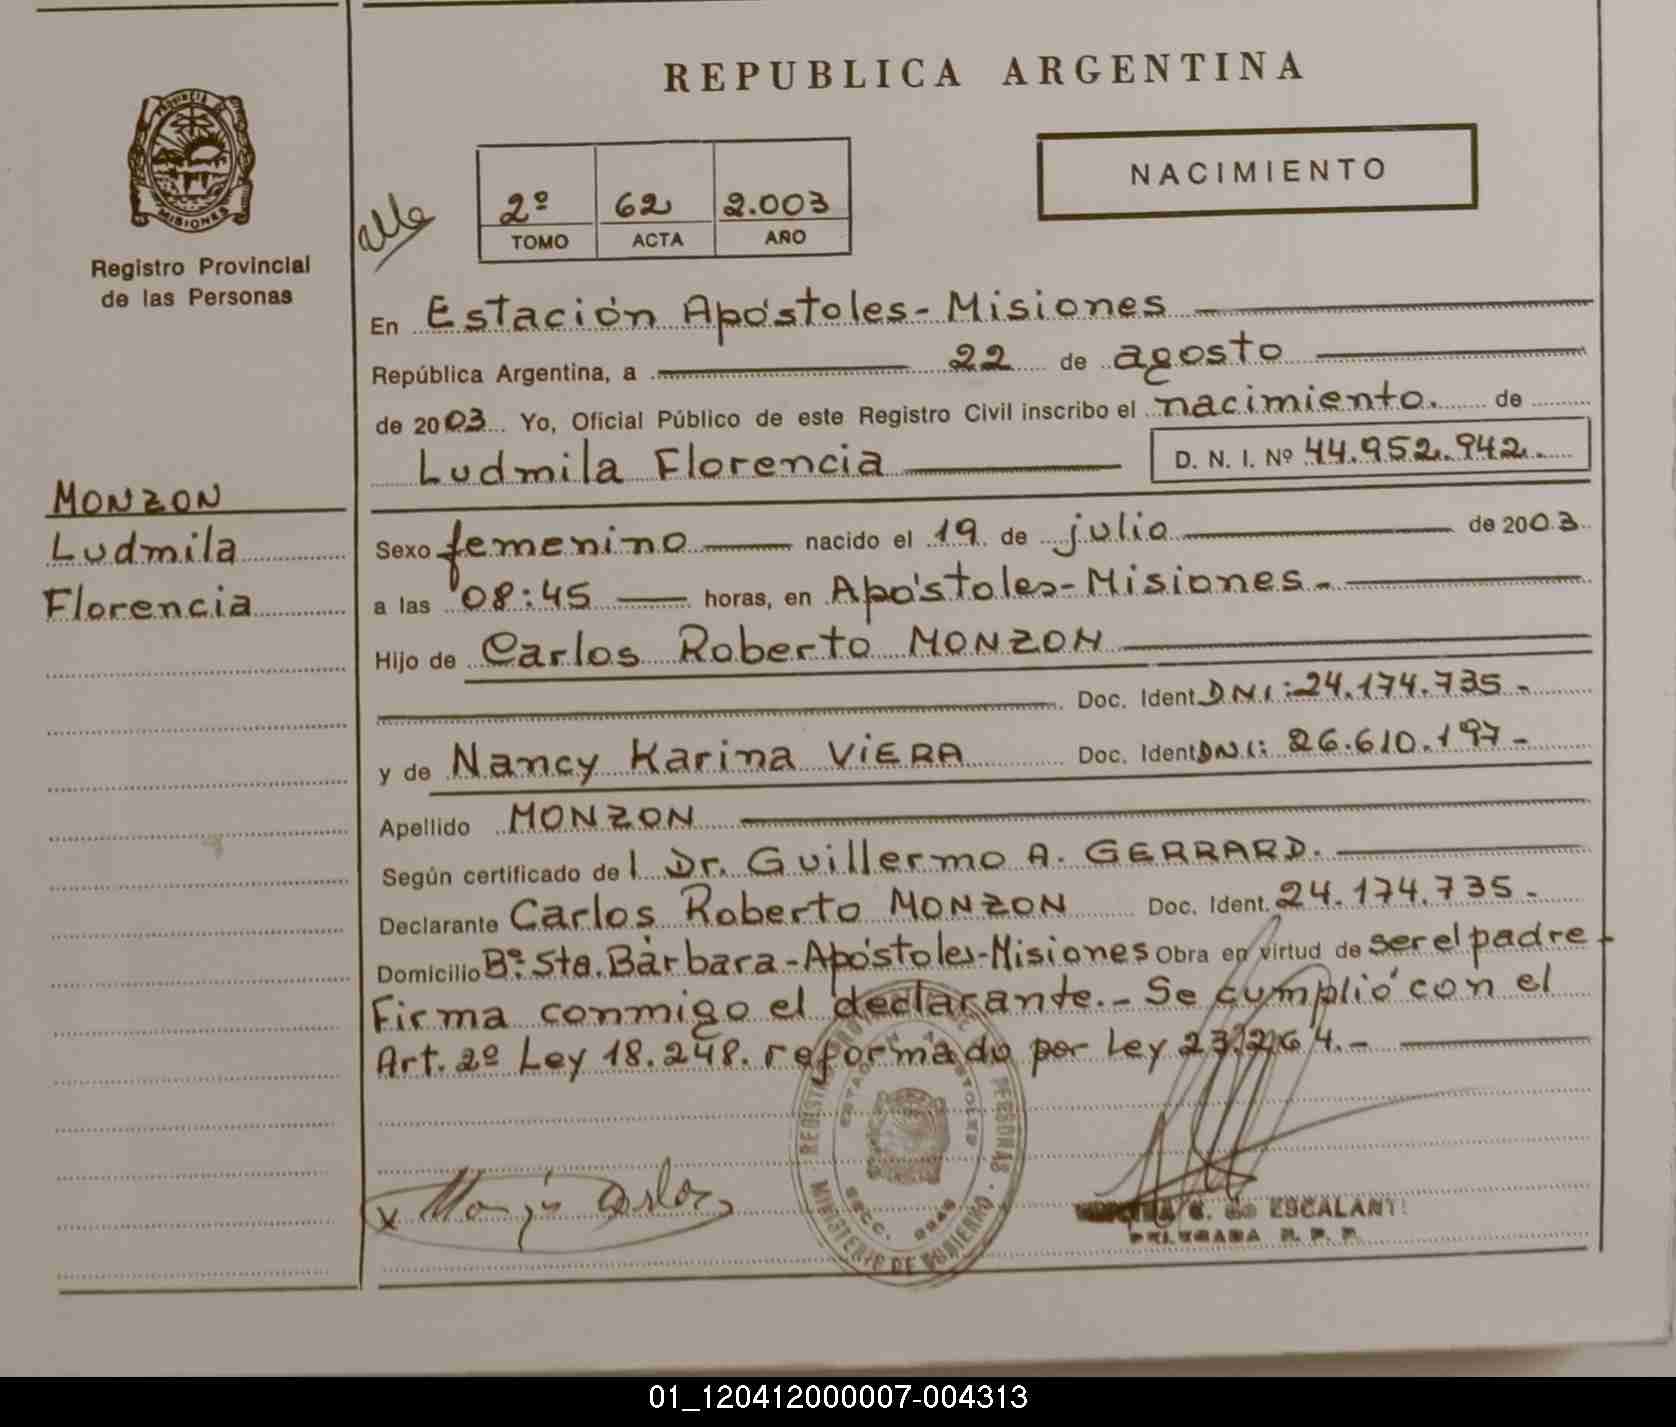 REPUBLICA ARGENTINA
PROVINCIA DE
MISIONES
Registro Provincial
de las Personas
NACIMIENTO
2º 62 2.003
TOMO ACTA AÑO
En Estación Apóstoles-Misiones
República Argentina, a 22 de agosto
de 2003 Yo, Oficial Público de este Registro Civil inscribo el nacimiento. de
Ludmila Florencia D. N. I. Nº 44.952.942.
MONZON
Ludmila
Florencia
Sexo femenino nacido el 19 de julio de 2003
a las 08:45 horas, en Apóstoles-Misiones-
Hijo de Carlos Roberto MONZON
Doc. Ident. DNI:24.174.735-
y de Nancy Karina VIERA Doc. Ident DNI: 26.610.197-
Apellido MONZON
Según certificado del Dr. Guillermo A. GERRARD.
Declarante Carlos Roberto MONZON Doc. Ident. 24.174.735-
Domicilio Bº Sta. Bárbara-Apóstoles-Misiones Obra en virtud de ser el padre-
Firma conmigo el declarante.- Se cumplió con el
Art. 2º Ley 18.248. reformado por Ley 23.264.-
MINISTERIO DE GOBIERNO
x Monzón Carlos
ESCALANT
01_120412000007-004313